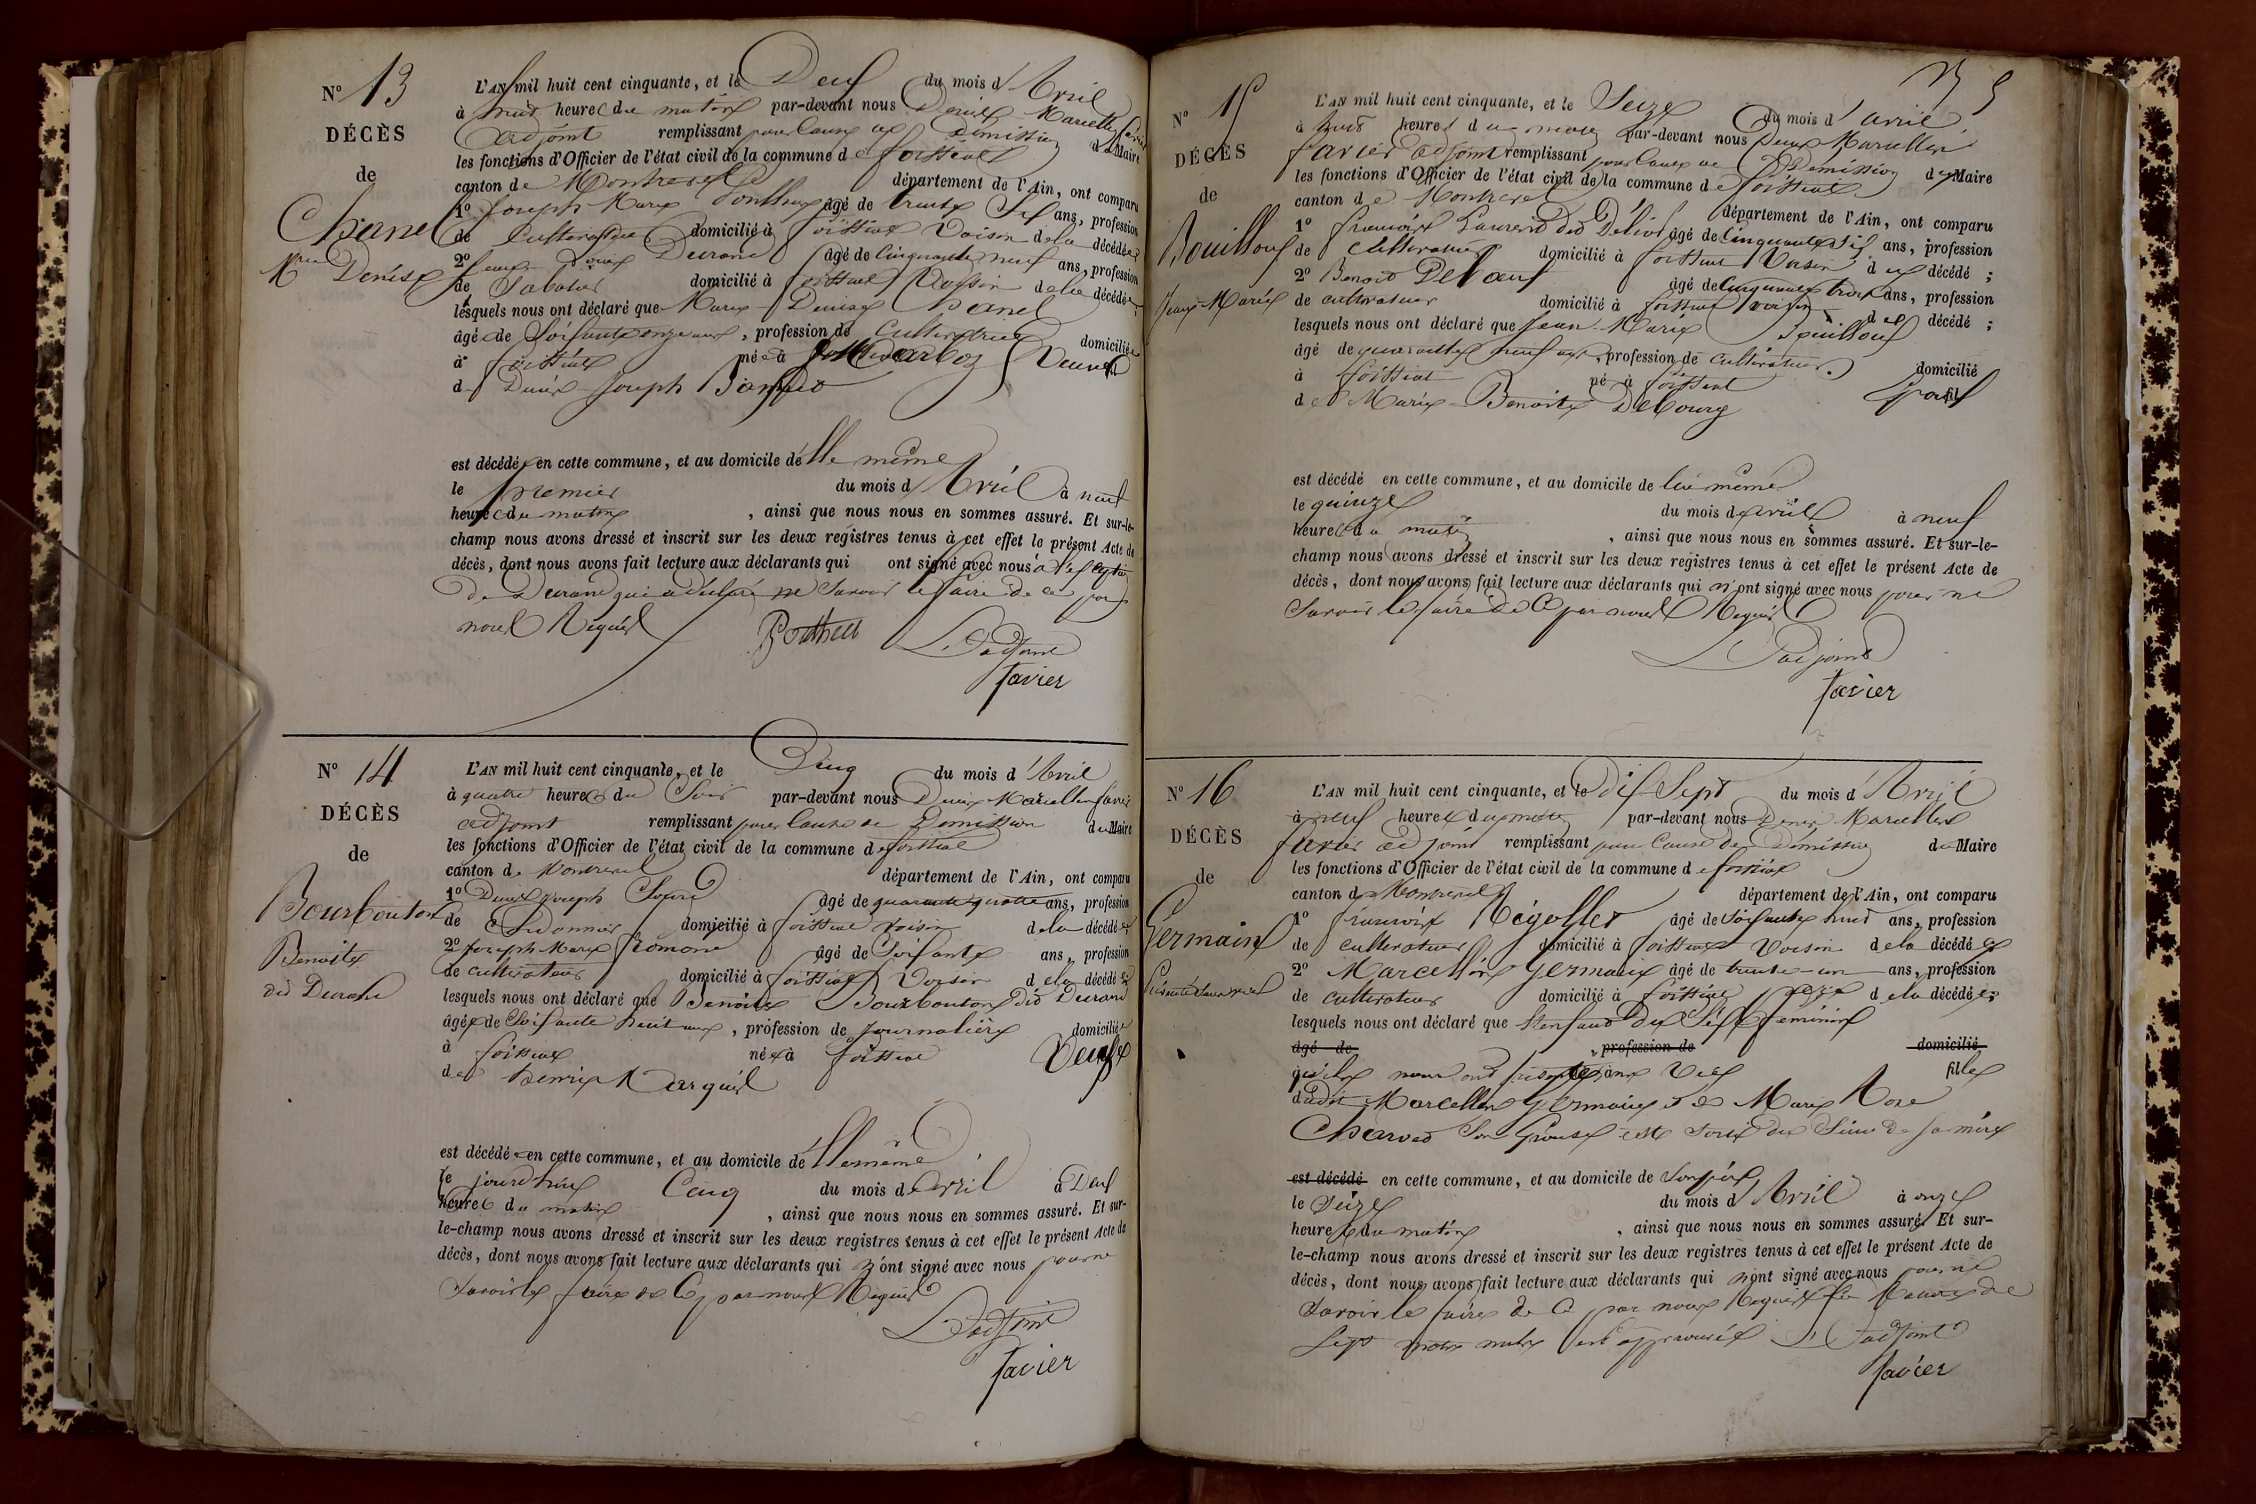 N° 13
DÉCÈS
de
Chanel
Mie Denise
L'AN mil huit cent cinquante, et le Deux du mois d'Avril
à huit heures du matin par-devant nous Denis Marcellin Favier
adjoint remplissant pour cause de Démission du Maire
les fonctions d'Officier de l'état civil de la commune de foissiat
canton de Montrevel département de l'Ain, ont comparu
1° Joseph Marie Ponthus âgé de trente Six ans, profession
de Cultivateur domicilié à foissiat Voisin de la décédée
2° Durand âgé de Cinquante neuf ans, profession
de Sabotier domicilié à foissiat Voisin de la décédée
lesquels nous ont déclaré que Marie Denise Chanel
âgée de Soixante onze ans, profession de Cultivatrice domiciliée
à foissiat née à Veuve
de Denis Joseph
est décédée en cette commune, et au domicile de Elle même
le premier du mois d'Avril à neuf
heures du matin, ainsi que nous nous en sommes assuré. Et sur-le-
champ nous avons dressé et inscrit sur les deux registres tenus à cet effet le présent Acte de
décès, dont nous avons fait lecture aux déclarants qui ont signé avec nous à l'exception
de Durand qui a déclaré ne Savoir le faire de ce par
nous Requis
L'adjoint
Favier
N° 14
DÉCÈS
de
Bourbouton
Benoite
dit Durand
L'AN mil huit cent cinquante, et le Cinq du mois d'Avril
à quatre heures du Soir par-devant nous Denis Marcellin favier
adjoint remplissant pour Cause de Démission du Maire
les fonctions d'Officier de l'état civil de la commune de foissiat
canton de Montrevel département de l'Ain, ont comparu
1° Denis Joseph âgé de quarante quatre ans, profession
de Cordonnier domicilié à foissiat voisin de la décédée
2° Joseph Marie Fromont âgé de Soixante ans, profession
de cultivateur domicilié à foissiat Voisin de la décédée
lesquels nous ont déclaré que Benoite Bourbouton dit Durand
âgée de Soixante huit ans, profession de Journalière domiciliée
à foissiat née à foissiat Veuve
de Henri Marguil
est décédée en cette commune, et au domicile de Elle même
le jourd'hui Cinq du mois d'avril à Deux
heures du matin, ainsi que nous nous en sommes assuré. Et sur-
le-champ nous avons dressé et inscrit sur les deux registres tenus à cet effet le présent Acte de
décès, dont nous avons fait lecture aux déclarants qui n'ont signé avec nous pour ne
Savoir le faire de Ce par nous Requis
L'adjoint
Favier
N° 15
DÉCÈS
de
Bouilloux
Jean-Marie
L'AN mil huit cent cinquante, et le Seize du mois d'avril
à huit heures du matin par-devant nous Denis Marcellin
favier adjoint remplissant pour Cause de Démission du Maire
les fonctions d'Officier de l'état civil de la commune de foissiat
canton de Montrevel département de l'Ain, ont comparu
1° françois Laurent dit âgé de Cinquante Six ans, profession
de Cultivateur domicilié à foissiat Voisin du décédé;
2° Benoit Debœuf âgé de Cinquante trois ans, profession
de cultivateur domicilié à foissiat voisin du décédé;
lesquels nous ont déclaré que Jean-Marie Bouilloux
âgé de quarante neuf ans, profession de cultivateur domicilié
à foissiat né à foissiat Epoux
de Marie Benoite Debourg
est décédé en cette commune, et au domicile de lui même
le quinze du mois d'avril à neuf
heures du matin, ainsi que nous nous en sommes assuré. Et sur-le-
champ nous avons dressé et inscrit sur les deux registres tenus à cet effet le présent Acte de
décès, dont nous avons fait lecture aux déclarants qui n'ont signé avec nous pour ne
Savoir le faire de Ce par nous Requis
L'adjoint
Favier
N° 16
DÉCÈS
de
Germain
L'AN mil huit cent cinquante, et le Dix Sept du mois d'Avril
à neuf heures du matin par-devant nous Denis Marcellin
favier adjoint remplissant pour Cause de Démission du Maire
les fonctions d'Officier de l'état civil de la commune de foissiat
canton de Montrevel département de l'Ain, ont comparu
1° françois Régollet âgé de Soixante huit ans, profession
de cultivateur domicilié à foissiat Voisin de la décédée
2° Marcellin Germain âgé de trente-un ans, profession
de cultivateur domicilié à foissiat père de la décédée;
lesquels nous ont déclaré que L'enfant du Sexe féminin
âgé de profession de domicilié
qu'ils nous ont présenté sans Vie fille
dudit Marcellin Germain et de Marie Rose
Charvet Son épouse est Sorti du Sein de Sa mère
est décédé en cette commune, et au domicile de Son père
le Seize du mois d'Avril à onze
heures du matin, ainsi que nous nous en sommes assuré. Et sur-
le-champ nous avons dressé et inscrit sur les deux registres tenus à cet effet le présent Acte de
décès, dont nous avons fait lecture aux déclarants qui n'ont signé avec nous pour ne
Savoir le faire de Ce par nous Requis
Sept mots nuls est approuvé L'adjoint
Favier